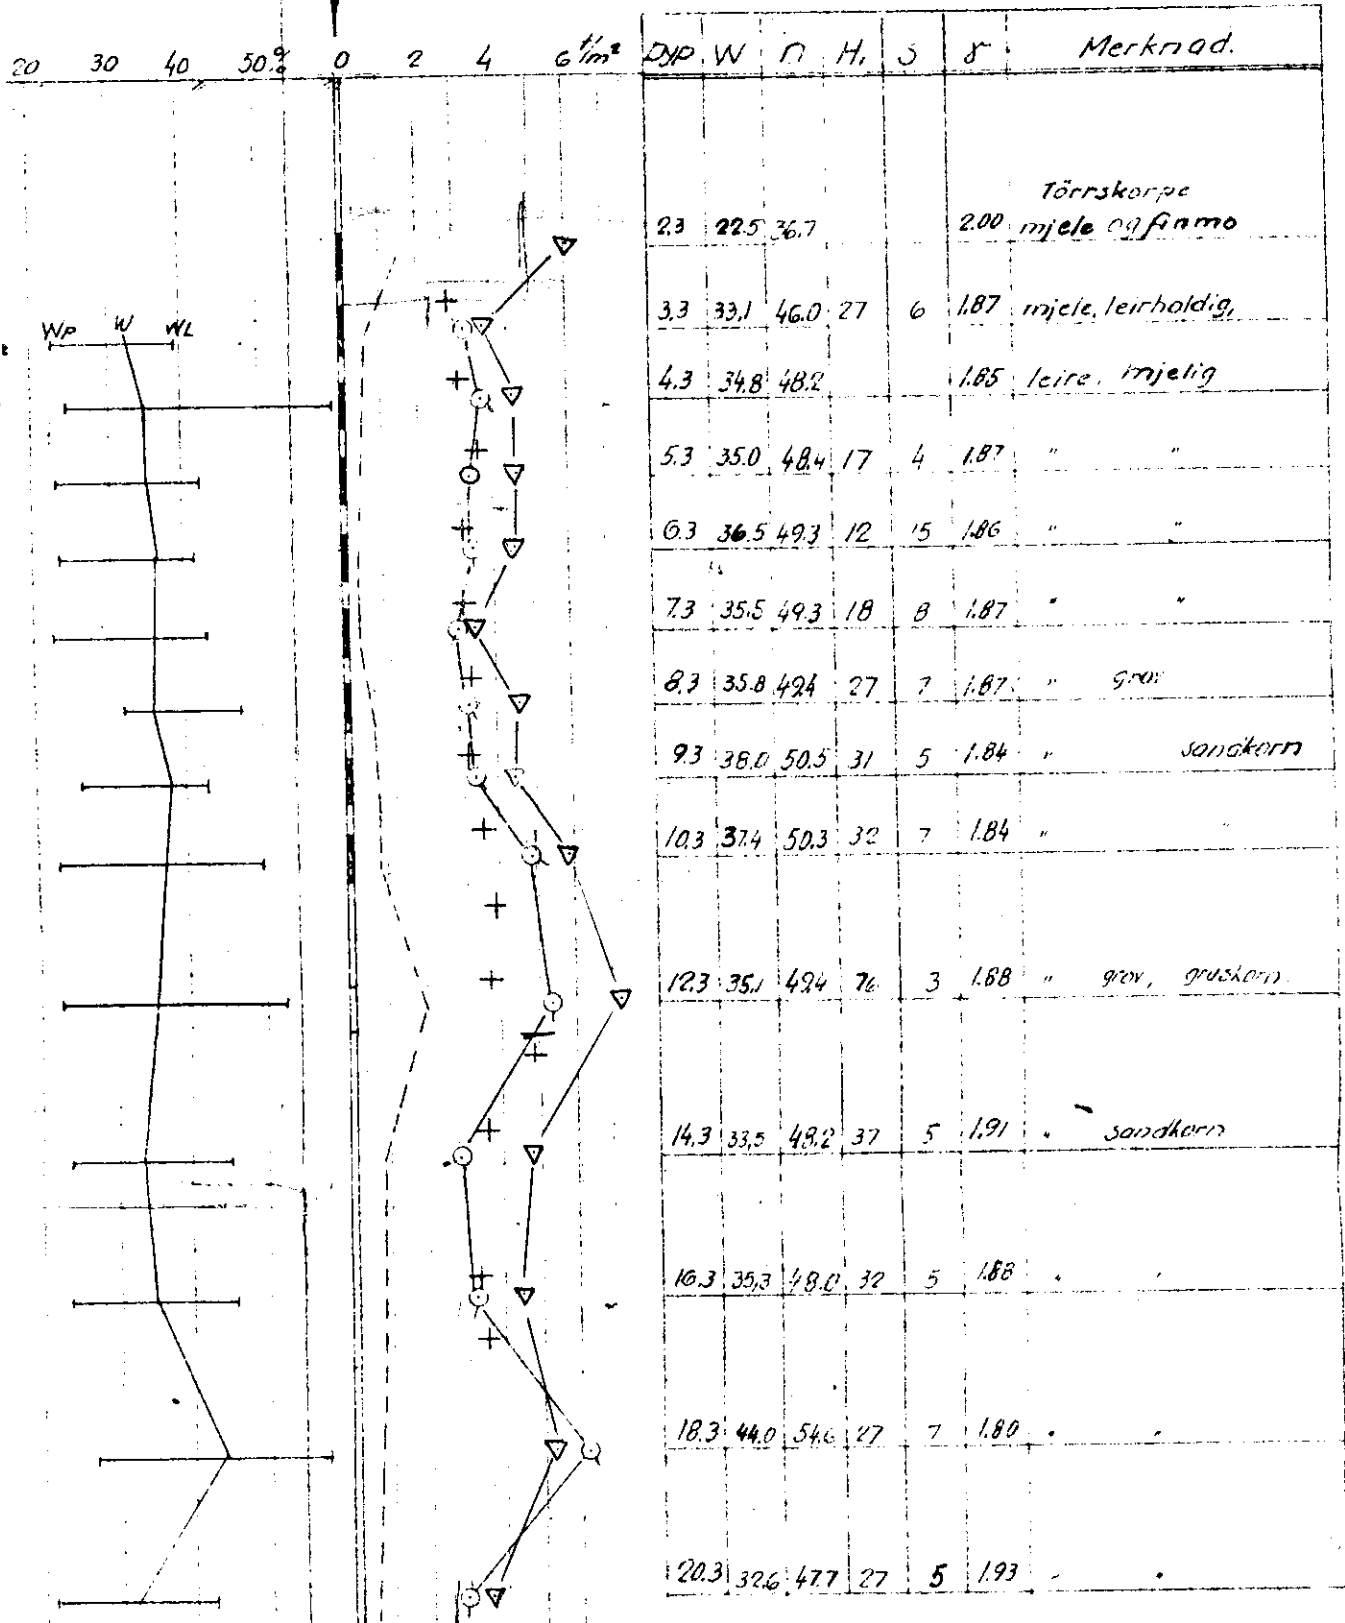 20 30 40 50% 0 2 4 6 t/m² Dyp. W n H. S γ Merknad.
Törrskorpe
2.3 22.5 36.7 2.00 mjele og finmo
3.3 33,1 46.0 27 6 1.87 mjele, leirholdig,
Wp W WL
4.3 34.8 48.2 1.85 leire, mjelig
5.3 35.0 48.4 17 4 1.87 " "
6.3 36.5 49.3 12 15 1.86 " "
7.3 35.5 49.3 18 8 1.87 " "
8.3 35.8 49.4 27 7 1.87 " grov
9.3 38.0 50.5 31 5 1.84 " sandkorn
10.3 37.4 50.3 32 7 1.84 " "
12.3 35,1 49.4 76 3 1.88 " grov, gruskorn
14.3 33,5 48.2 37 5 1.91 " sandkorn
16.3 35,3 48.0 32 5 1.88 " "
18.3 44.0 54.6 27 7 1.80 " "
20.3 32.6 47.7 27 5 1.93 " "